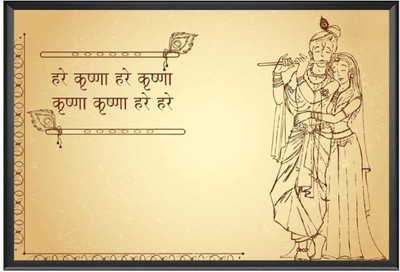 हरे कृष्णा हरे कृष्णा
कृष्णा कृष्णा हरे हरे